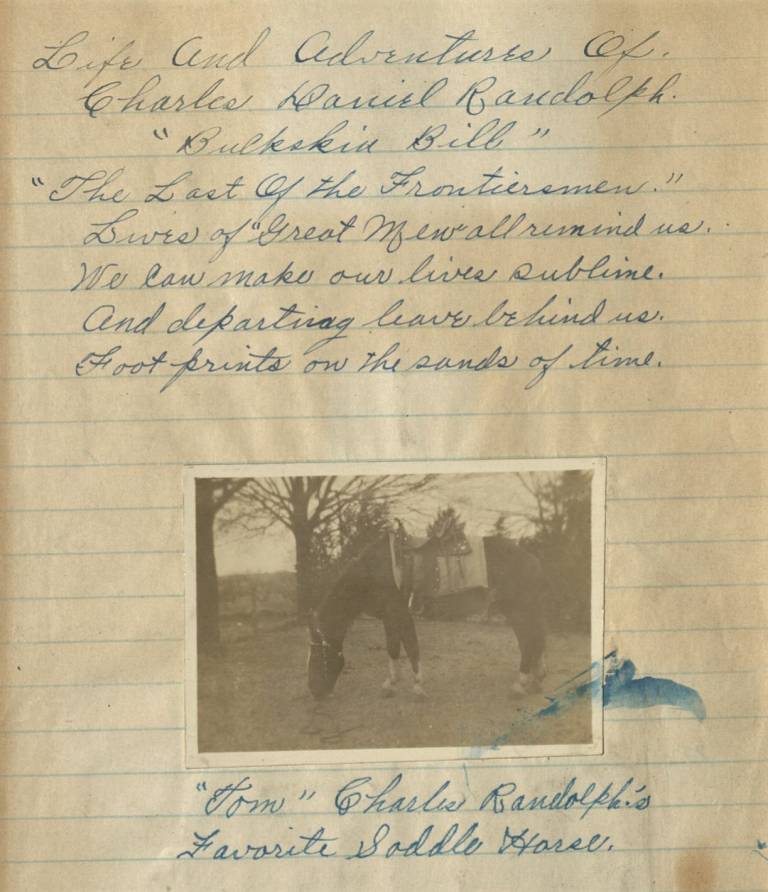 Life And Adventures Of.
Charles Daniel Randolph.
"Bulkskin Bill"
"The Last Of the Frontiersmen."
Lives of "Great Men" all remind us.
We Can make our lives sublime.
And departing leave behind us.
Foot prints on the sands of time.
"Tom" Charles Randolph's
Favorite Saddle Horse.